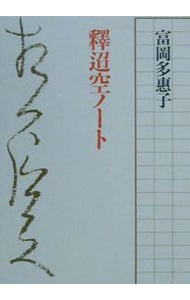 富岡多惠子
釋迢空ノート